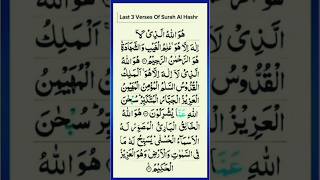 Last 3 Verses Of Surah Al Hashr
هُوَ اللّٰهُ الَّذِىْ لَاۤ
اِلٰهَ اِلَّا هُوَ ۚ عٰلِمُ الْغَيْبِ وَالشَّهَادَةِ ۚ
هُوَ الرَّحْمٰنُ الرَّحِيْمُ ۞ هُوَ اللّٰهُ
الَّذِىْ لَاۤ اِلٰهَ اِلَّا هُوَ ۚ اَلْمَلِكُ
الْقُدُّوْسُ السَّلٰمُ الْمُؤْمِنُ الْمُهَيْمِنُ
الْعَزِيْزُ الْجَبَّارُ الْمُتَكَبِّرُ ؕ سُبْحٰنَ
اللّٰهِ عَمَّا يُشْرِكُوْنَ ۞ هُوَ اللّٰهُ
الْخَالِقُ الْبَارِئُ الْمُصَوِّرُ لَهُ
الْاَسْمَآءُ الْحُسْنٰى ؕ يُسَبِّحُ لَهٗ مَا
فِى السَّمٰوٰتِ وَالْاَرْضِ ۚ وَهُوَ الْعَزِيْزُ
الْحَكِيْمُ ۞